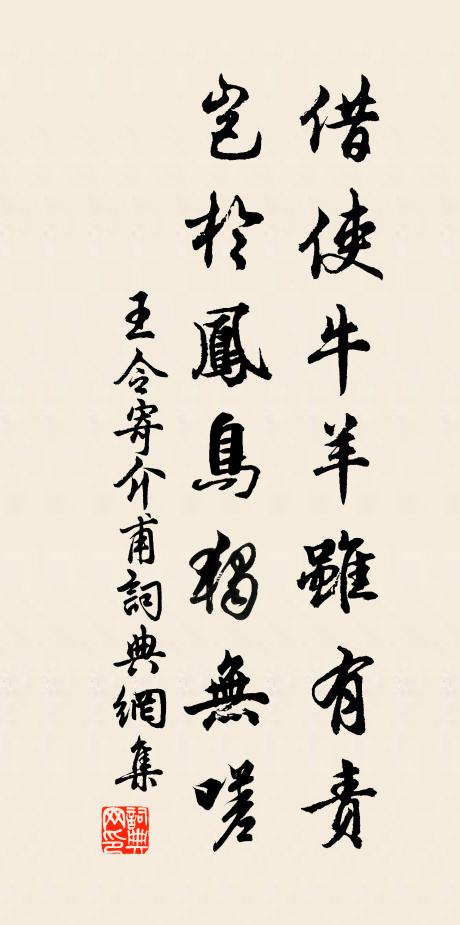 借使牛羊雖有責
豈於鳳鳥獨無嗟
王令寄介甫詞典網集
詞典网印